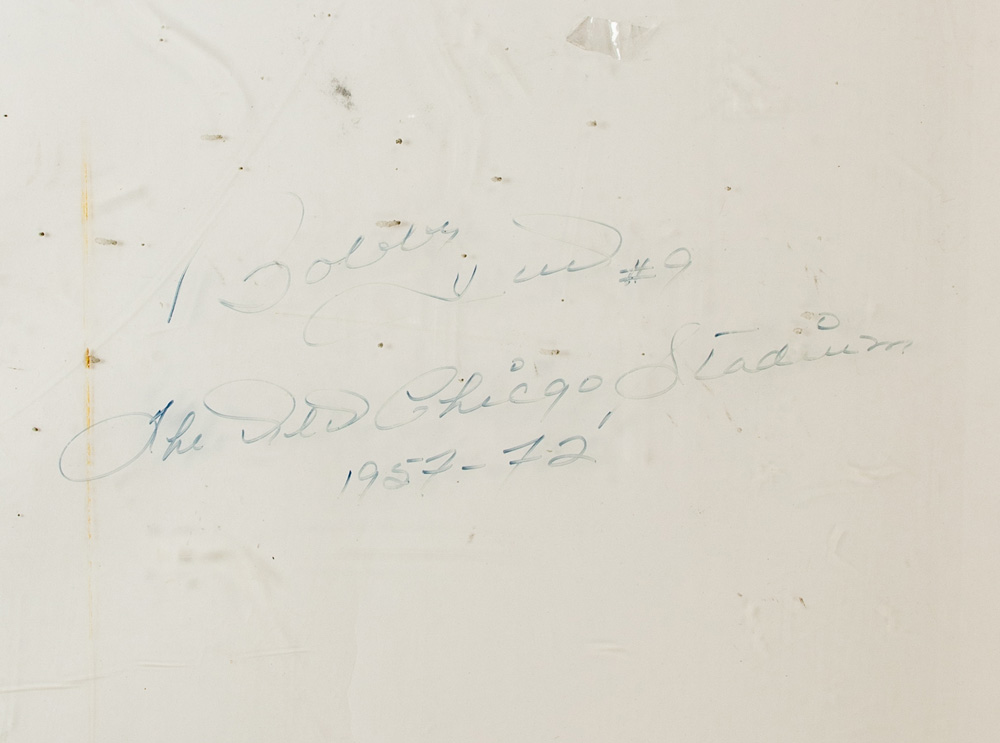 Bobby Hull #9
The Old Chicago Stadium
1957-72'